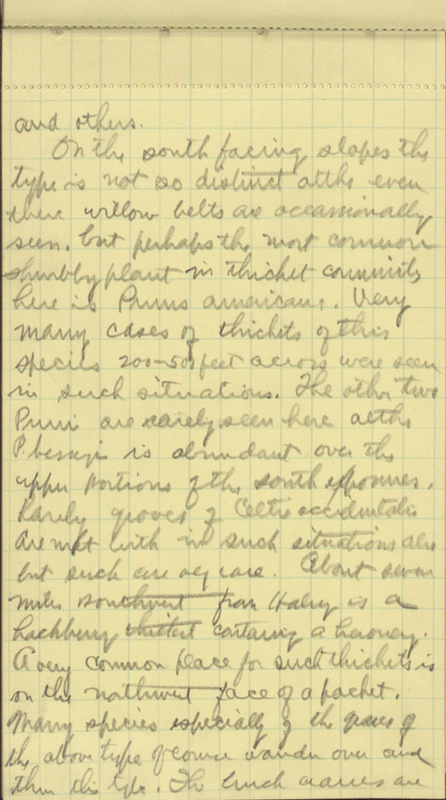 and others.
On the south facing slopes the
type is not so distinct altho even
there willow belts are occassionally
seen. but perhaps the most common
shrubby plant in thicket community
here is Prunus americana. Very
many cases of thickets of this
species 200-500 feet across were seen
in such situations. The other two
Pruni are rarely seen here altho
P. besseyi is abundant over the
upper portions of the south exposures.
Rarely groves of Celtis occidentalis
are met with in such situations also
but such are very rare. About seven
miles southwest from Halsey is a
hackberry thicket containing a heronry.
A very common place for such thickets is
on the northwest face of a pocket.
Many species especially of the grasses of
the above type of course wander over and
thru this type. The bunch grasses are